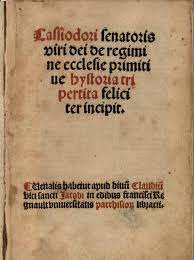 Cassiodori senatoris
viri dei de regimi
ne ecclesie primiti
ue hystoria tri
pertita felici
ter incipit.
Uenalis habetur apud diuū Claudiū
vici sancti Jacobi in edibus francisci Re
gnault vniuersitatis parrhisien̄ librarii.